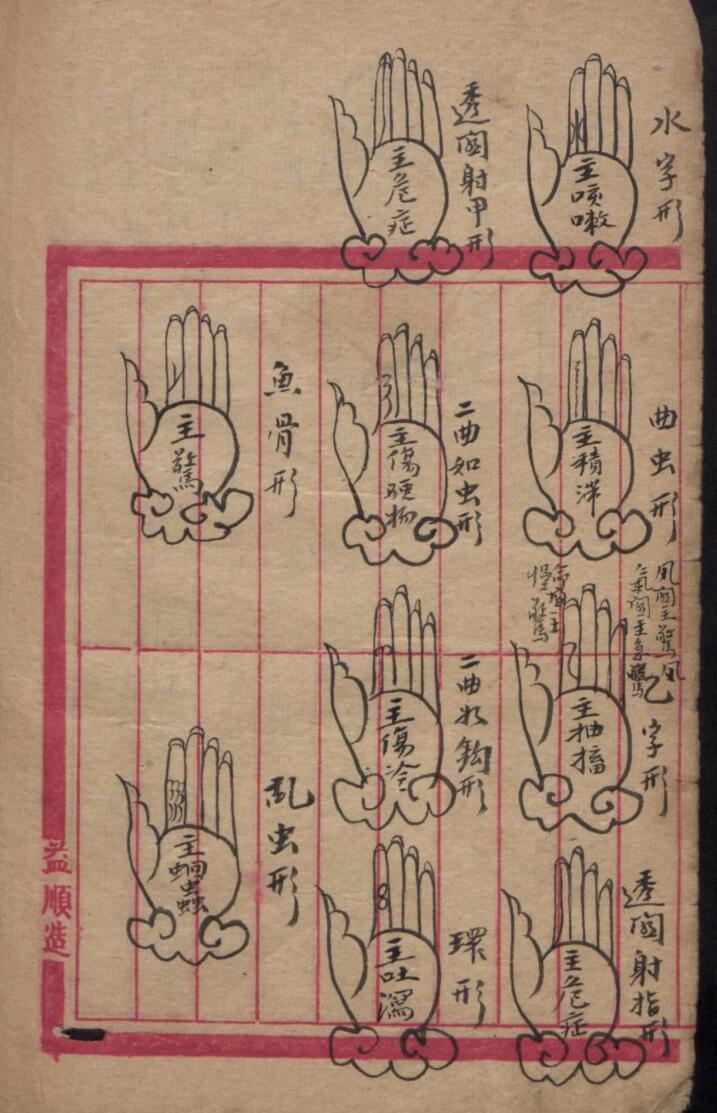 水字形
主咳嗽
曲虫形
主積滯
風關主驚風
氣關主急驚
命關主
慢驚
乙字形
主抽搐
透關射指形
主危症
透關射甲形
主危症
二曲如虫形
主傷硬物
二曲如鈎形
主傷冷
環形
主吐瀉
魚骨形
主驚
乱虫形
主蛔蟲
益順造